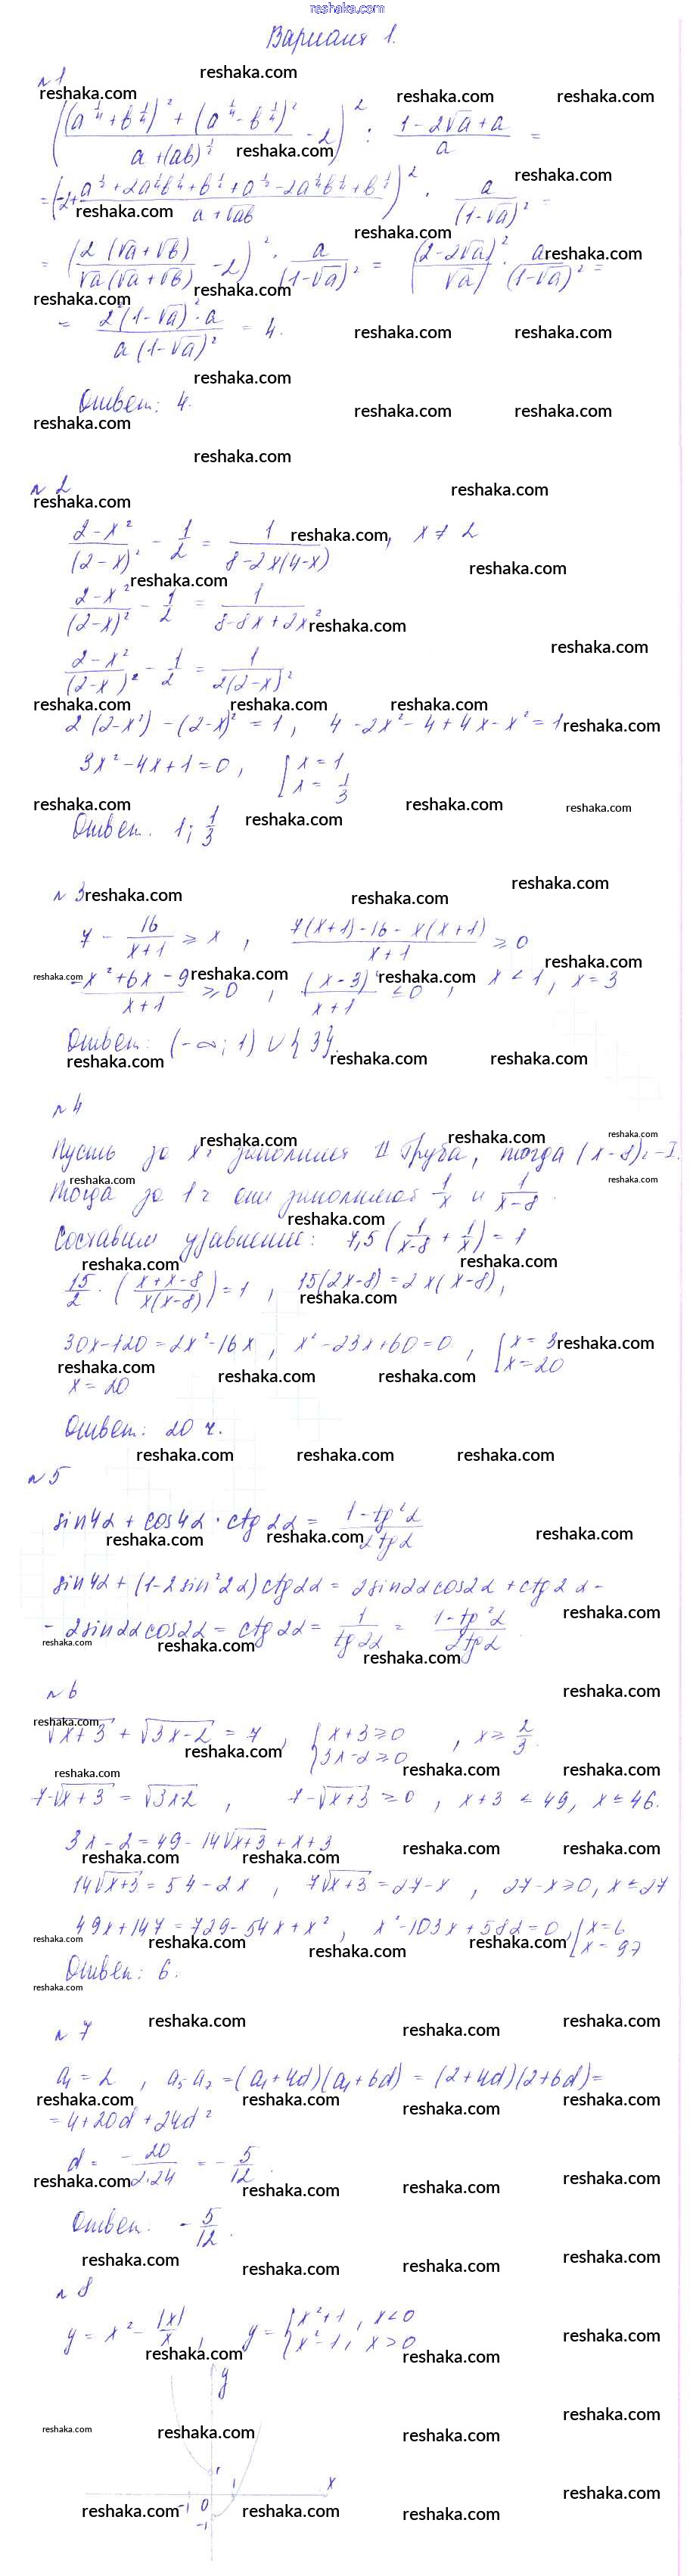 reshaka.com
Вариант 1.
№1
(((a^{1/4} + b^{1/4})² + (a^{1/4} - b^{1/4})²)/(a + (ab)^{1/2}) - 2)² : (1 - 2√a + a)/a =
= (-2 + (a^{1/2} + 2a^{1/4}b^{1/4} + b^{1/2} + a^{1/2} - 2a^{1/4}b^{1/4} + b^{1/2})/(a + √ab))² · a/(1-√a)² =
= (2(√a + √b)/(√a(√a + √b)) - 2)² · a/(1-√a)² = ((2-2√a)/√a)² · a/(1-√a)² =
= 2²(1-√a)²·a/(a(1-√a)²) = 4.
Ответ: 4.
№2
(2-x²)/(2-x)² - 1/2 = 1/(8-2x(4-x)), x ≠ 2
(2-x²)/(2-x)² - 1/2 = 1/(8-8x+2x²)
(2-x²)/(2-x)² - 1/2 = 1/(2(2-x)²)
2(2-x²) - (2-x)² = 1, 4 - 2x² - 4 + 4x - x² = 1
3x² - 4x + 1 = 0, [x = 1
x = 1/3
Ответ. 1; 1/3
№3
7 - 16/(x+1) ≥ x, (7(x+1) - 16 - x(x+1))/(x+1) ≥ 0
(-x² + 6x - 9)/(x+1) ≥ 0, (x-3)²/(x+1) ≤ 0, x < 1, x = 3
Ответ: (-∞; 1) ∪ {3}.
№4
Пусть за x ч заполнит II труба, тогда (x-8)ч - I.
Тогда за 1 ч они заполняют 1/x и 1/(x-8).
Составим уравнение: 7,5(1/(x-8) + 1/x) = 1
15/2 · ((x+x-8)/(x(x-8))) = 1, 15(2x-8) = 2x(x-8),
30x-120 = 2x²-16x, x²-23x+60=0, [x = 3
x = 20
x = 20
Ответ: 20 ч.
№5
sin4α + cos4α · ctg2α = (1-tg²α)/(2tgα)
sin4α + (1-2sin²2α)ctg2α = 2sin2αcos2α + ctg2α -
- 2sin2αcos2α = ctg2α = 1/tg2α = (1-tg²α)/(2tgα).
№6
√(x+3) + √(3x-2) = 7, {x+3≥0
3x-2≥0, x ≥ 2/3.
7-√(x+3) = √(3x-2), 7-√(x+3) ≥ 0, x+3 ≤ 49, x ≤ 46.
3x-2 = 49-14√(x+3) + x+3
14√(x+3) = 54-2x, 7√(x+3) = 27-x, 27-x≥0, x≤27
49x+147 = 729-54x+x², x²-103x+582=0, [x=6
x=97
Ответ: 6.
№7
a₁ = 2, a₅·a₇ = (a₁+4d)(a₁+6d) = (2+4d)(2+6d) =
= 4+20d+24d²
d = -20/(2·24) = -5/12.
Ответ. -5/12.
№8
y = x² - |x|/x, y = {x²+1, x<0
x²-1, x>0
y
1
-1 0 1 x
-1